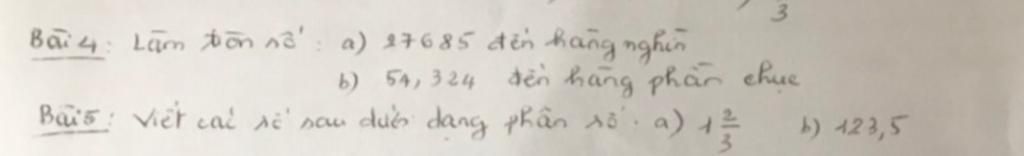 3
Bài 4: Làm tròn số: a) 27685 đến hàng nghìn
b) 54,324 đến hàng phần chục
Bài 5: Viết các số sau dưới dạng phân số. a) 1 2/3 b) 123,5